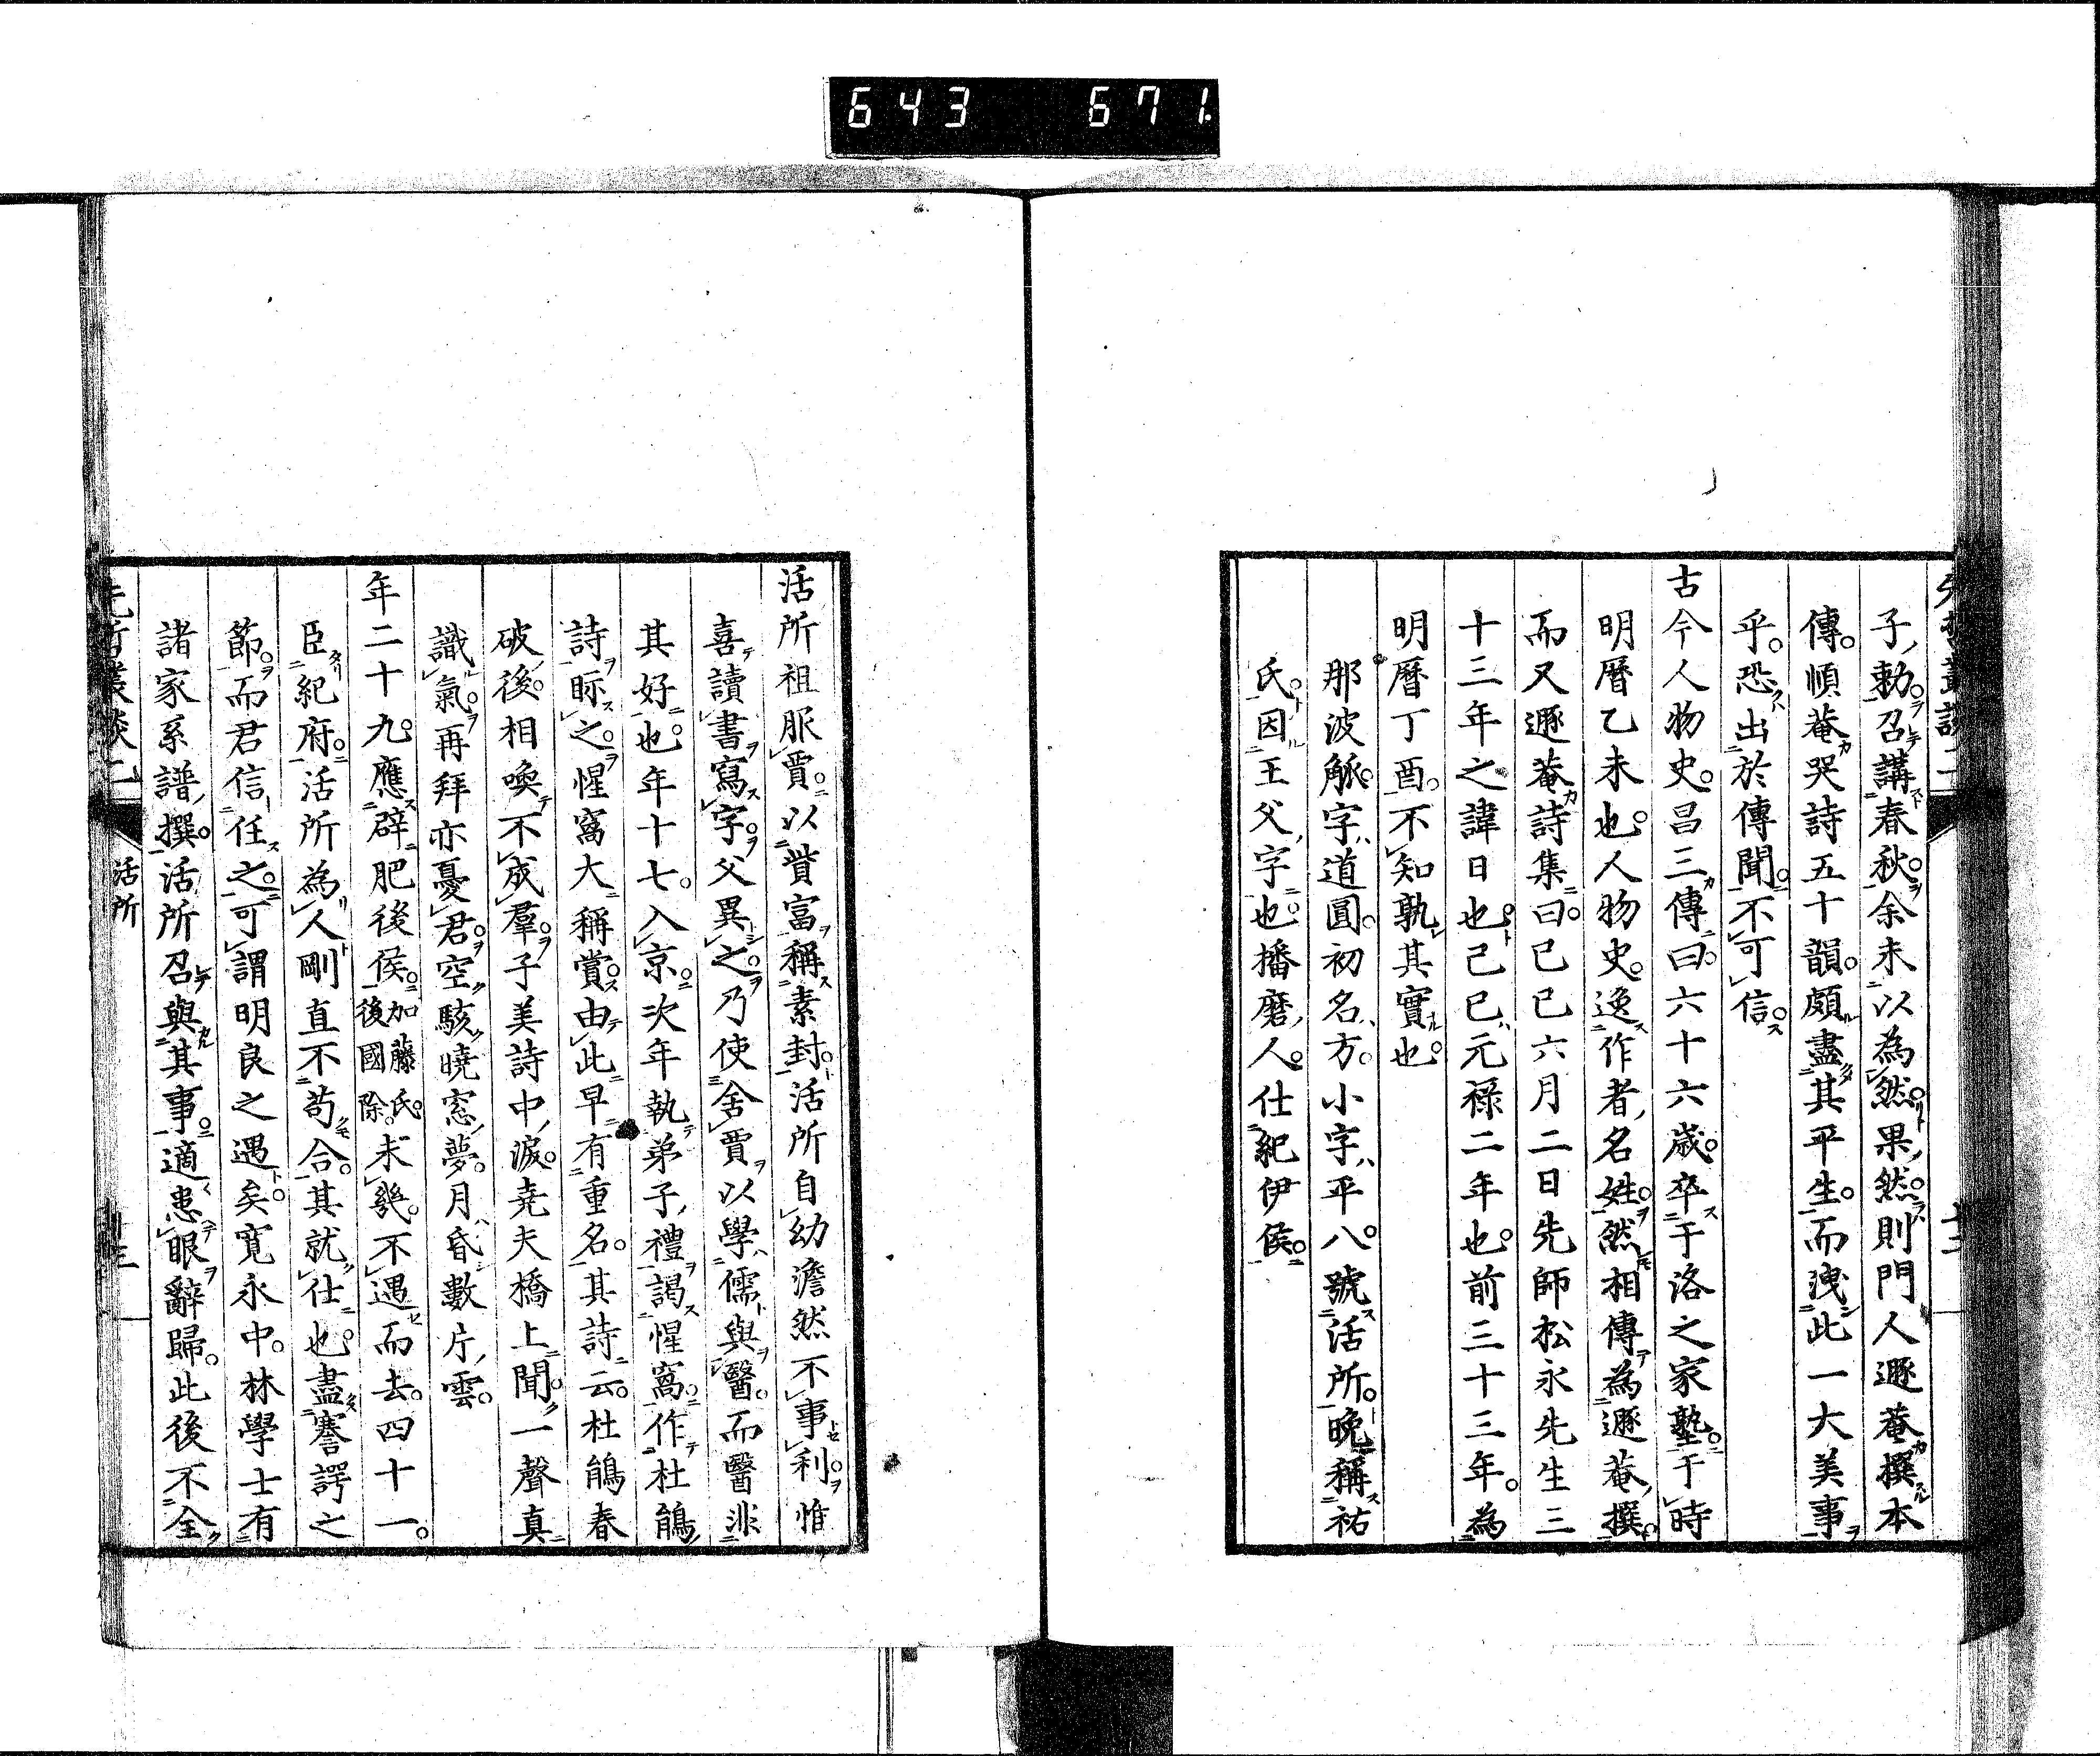 643 671
子勅召講春秋余未以為然果然則門人遯菴撰本
傳順菴哭詩五十韻頗盡其平生而洩此一大美事
乎恐出於傳聞不可信
古今人物史昌三傳曰六十六歳卒于洛之家塾于時
明曆乙未也人物史逸作者名姓然相傳為遯菴撰
而又遯菴詩集曰己巳六月二日先師松永先生三
十三年之諱日也己巳元祿二年也前三十三年為
明曆丁酉不知孰其實也
那波觚字道圓初名方小字平八號活所晩稱祐
氏因王父字也播磨人仕紀伊侯
活所祖服賈以貲富稱素封活所自幼澹然不事利惟
喜讀書寫字父異之乃使舍賈以學儒與醫而醫非
其好也年十七入京次年執弟子禮謁惺窩作杜鵑
詩眎之惺窩大稱賞由此早有重名其詩云杜鵑春
破後相喚不成羣子美詩中淚堯夫橋上聞一聲真
識氣再拜亦憂君空駭曉窓夢月昏數片雲
年二十九應辟肥後侯加藤氏後國除未幾不遇而去四十一
臣紀府活所為人剛直不苟合其就仕也盡謇諤之
節而君信任之可謂明良之遇矣寛永中林學士有
諸家系譜撰活所召與其事適患眼辭歸此後不全
活所